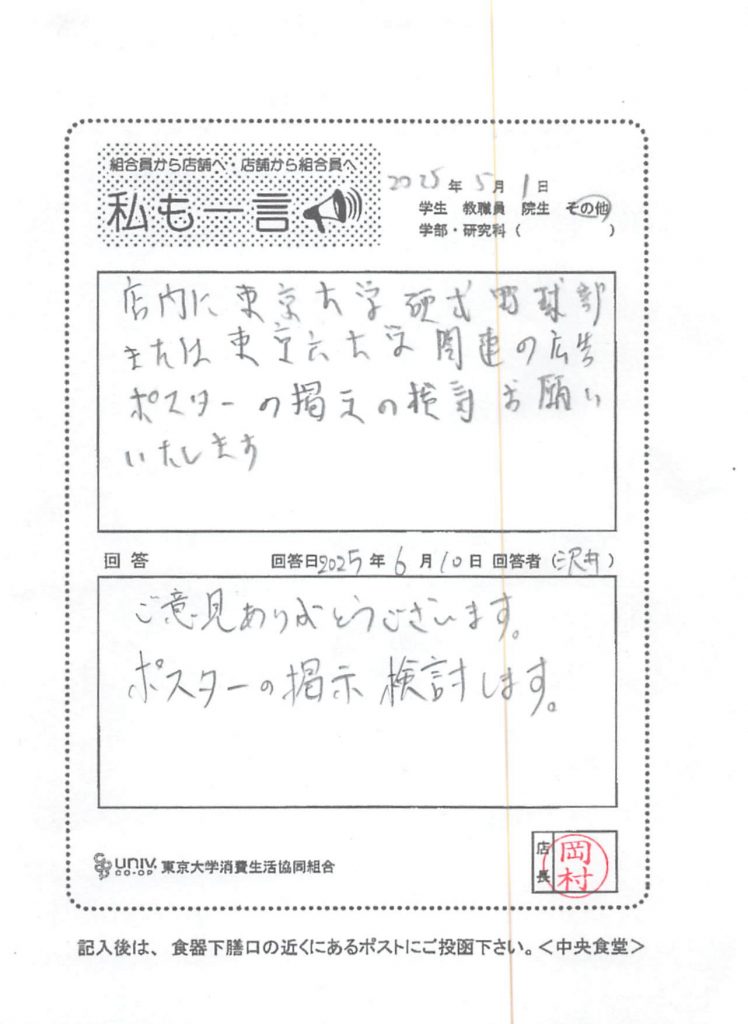 組合員から店舗へ・店舗から組合員へ
私も一言
2025年5月1日
学生 教職員 院生 その他
学部・研究科( )
店内に東京大学硬式野球部
または東京六大学関連の広告
ポスターの掲示の検討お願い
いたします
回答 回答日2025年6月10日 回答者(三沢井)
ご意見ありがとうございます。
ポスターの掲示 検討します。
UNIV. CO-OP 東京大学消費生活協同組合
店長 岡村
記入後は、食器下膳口の近くにあるポストにご投函下さい。<中央食堂>